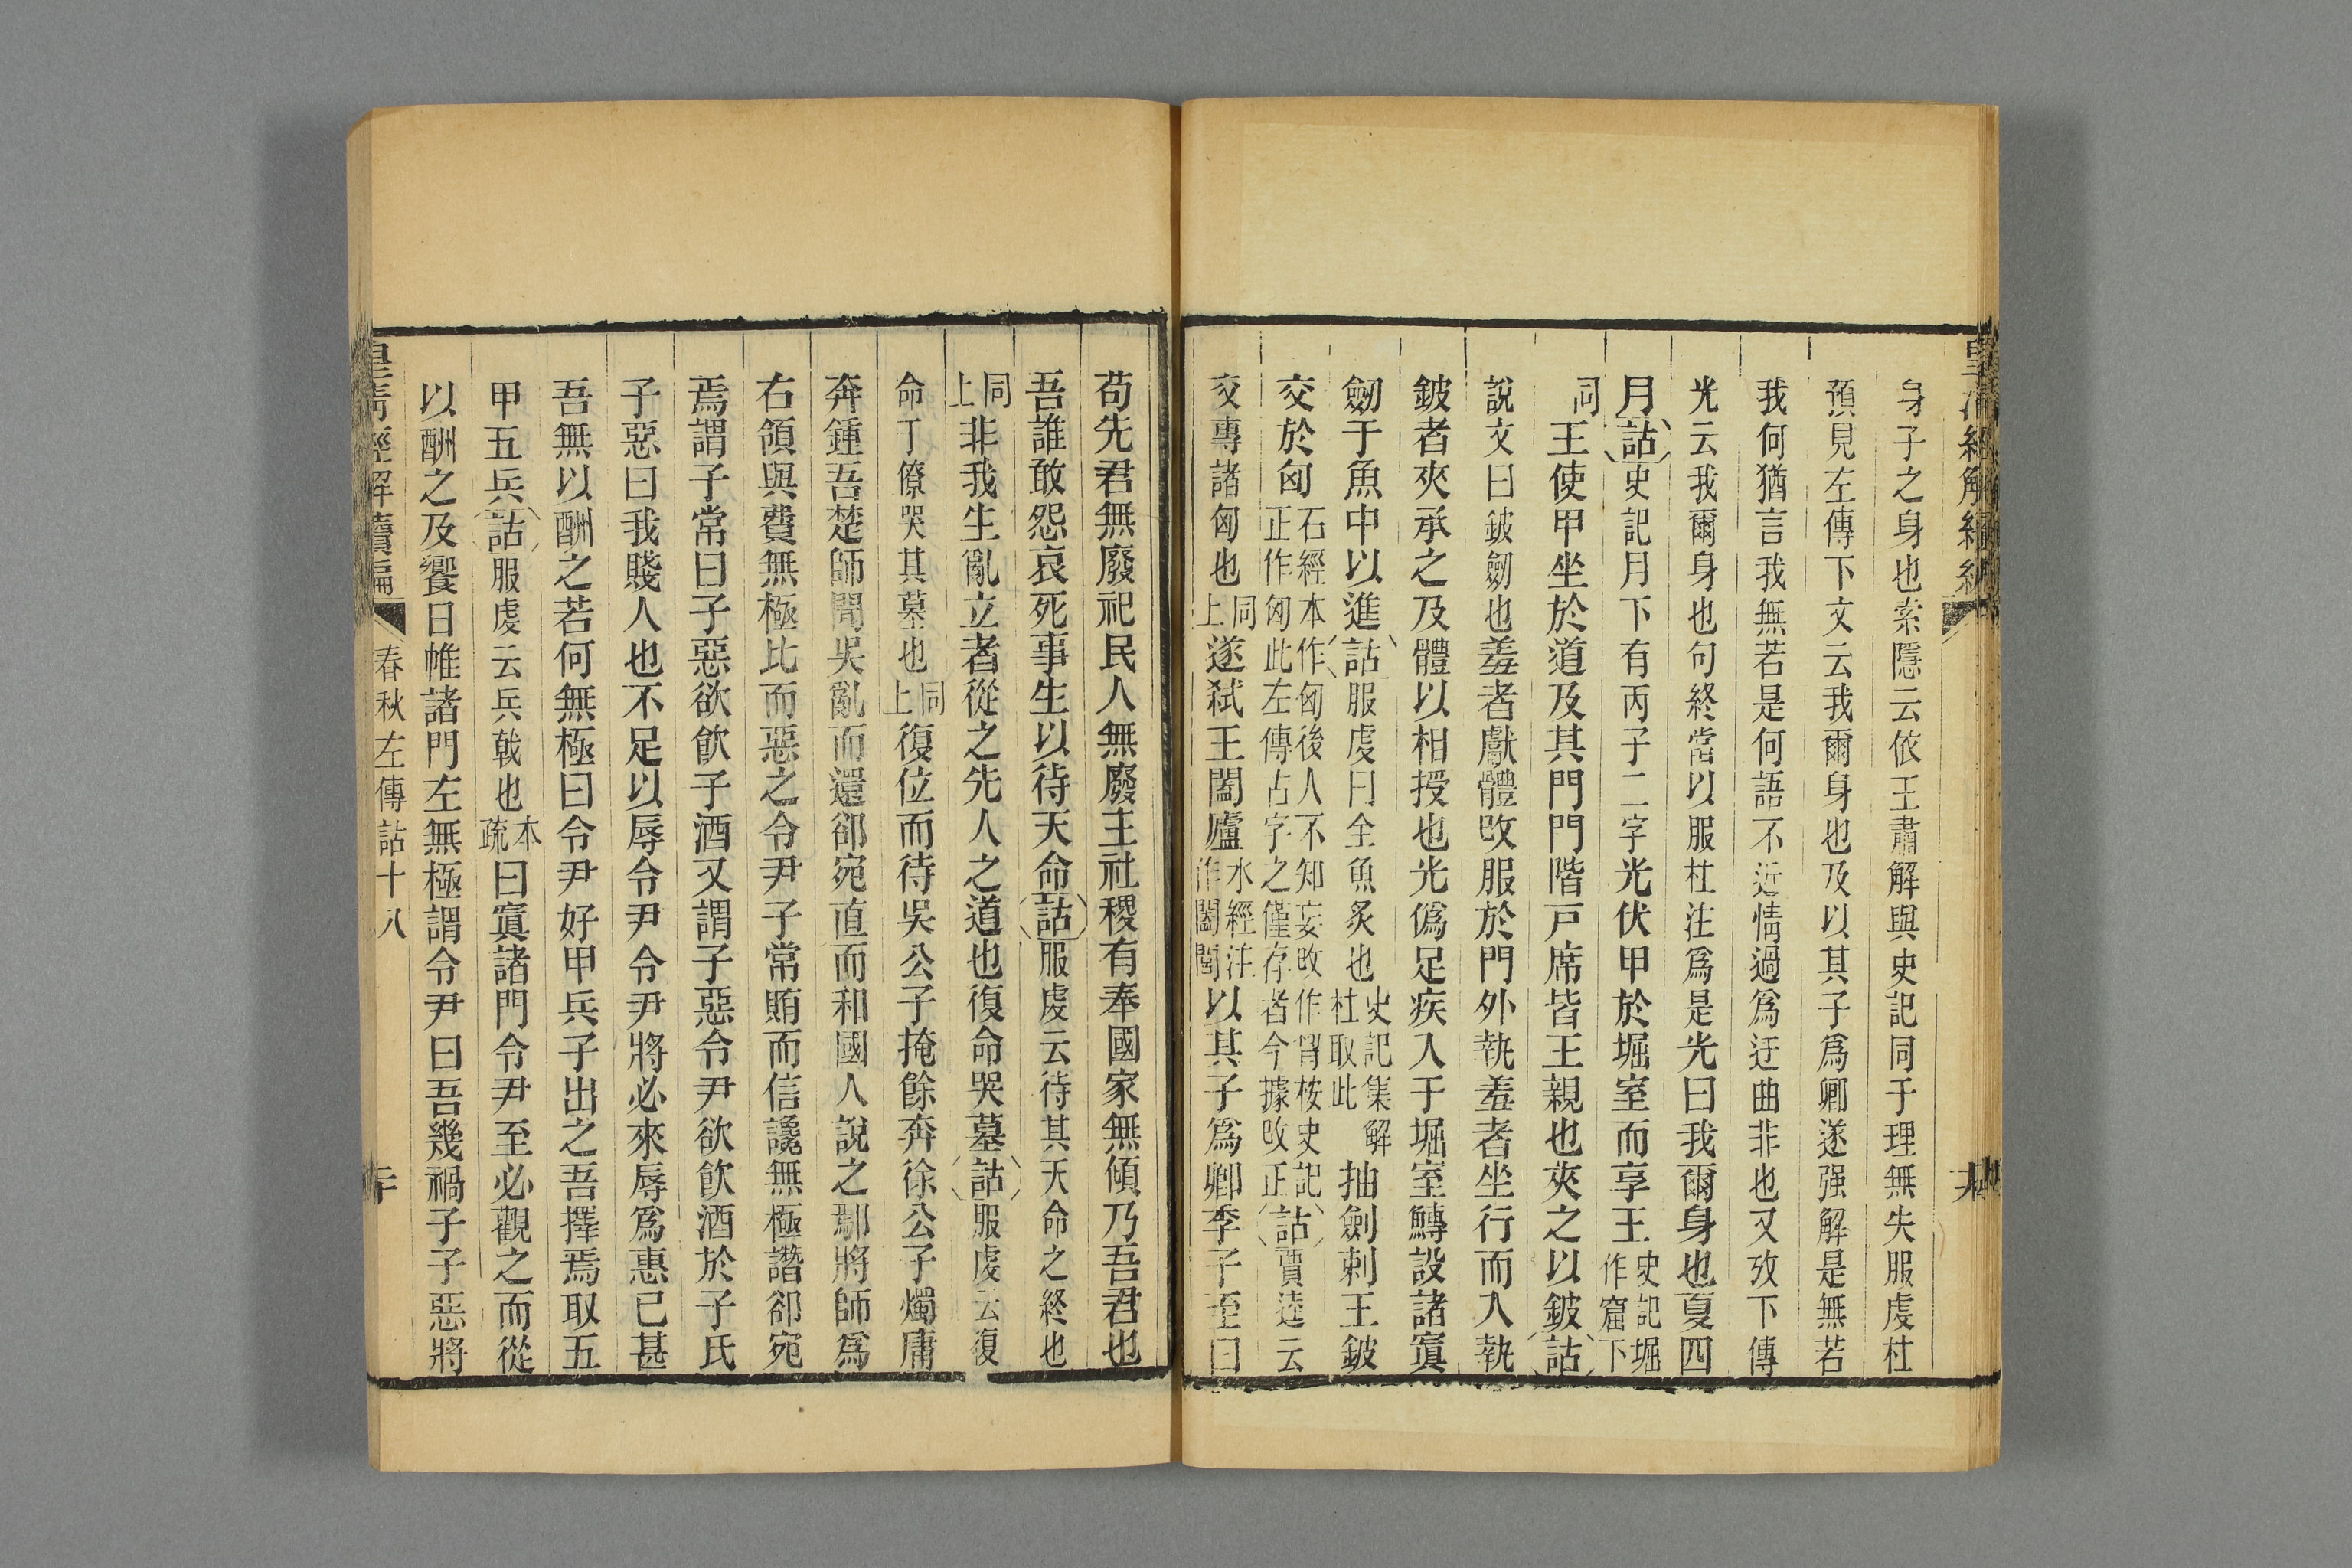 皇清經解續編
身子之身也索隱云依王肅解與史記同于理無失服虔杜
預見左傳下文云我爾身也及以其子爲卿遂强解是無若
我何猶言我無若是何語不近情過爲迂曲非也又攷下傳
光云我爾身也句終當以服杜注爲是光曰我爾身也夏四
月詁史記月下有丙子二字光伏甲於堀室而享王史記堀作窟下
同王使甲坐於道及其門門階戸席皆王親也夾之以鈹詁
說文曰鈹劒也羞者獻體改服於門外執羞者坐行而入執
鈹者夾承之及體以相授也光僞足疾入于堀室鱄設諸寘
劒于魚中以進詁服虔曰全魚炙也史記集解杜取此抽劍刺王鈹
交於匈石經本作匈後人不知妄改作胷桉史記正作匈此左傳占字之僅存者今據改正詁賈逵云
交專諸匈也同上遂弑王闔廬水經注作闔閭以其子爲卿季子至曰
苟先君無廢祀民人無廢主社稷有奉國家無傾乃吾君也
吾誰敢怨哀死事生以待天命詁服虔云待其天命之終也
同上非我生亂立者從之先人之道也復命哭墓詁服虔云復
命丁僚哭其墓也同上復位而待吳公子掩餘奔徐公子燭庸
奔鍾吾楚師聞吳亂而還郤宛直而和國人說之鄢將師爲
右領與費無極比而惡之令尹子常賄而信讒無極譖郤宛
焉謂子常曰子惡欲飮子酒又謂子惡令尹欲飮酒於子氏
子惡曰我賤人也不足以辱令尹令尹將必來辱爲惠已甚
吾無以酬之若何無極曰令尹好甲兵子出之吾擇焉取五
甲五兵詁服虔云兵戟也本疏曰寘諸門令尹至必觀之而從
以酬之及饗日帷諸門左無極謂令尹曰吾幾禍子子惡將
皇清經解續編 春秋左傳詁十八